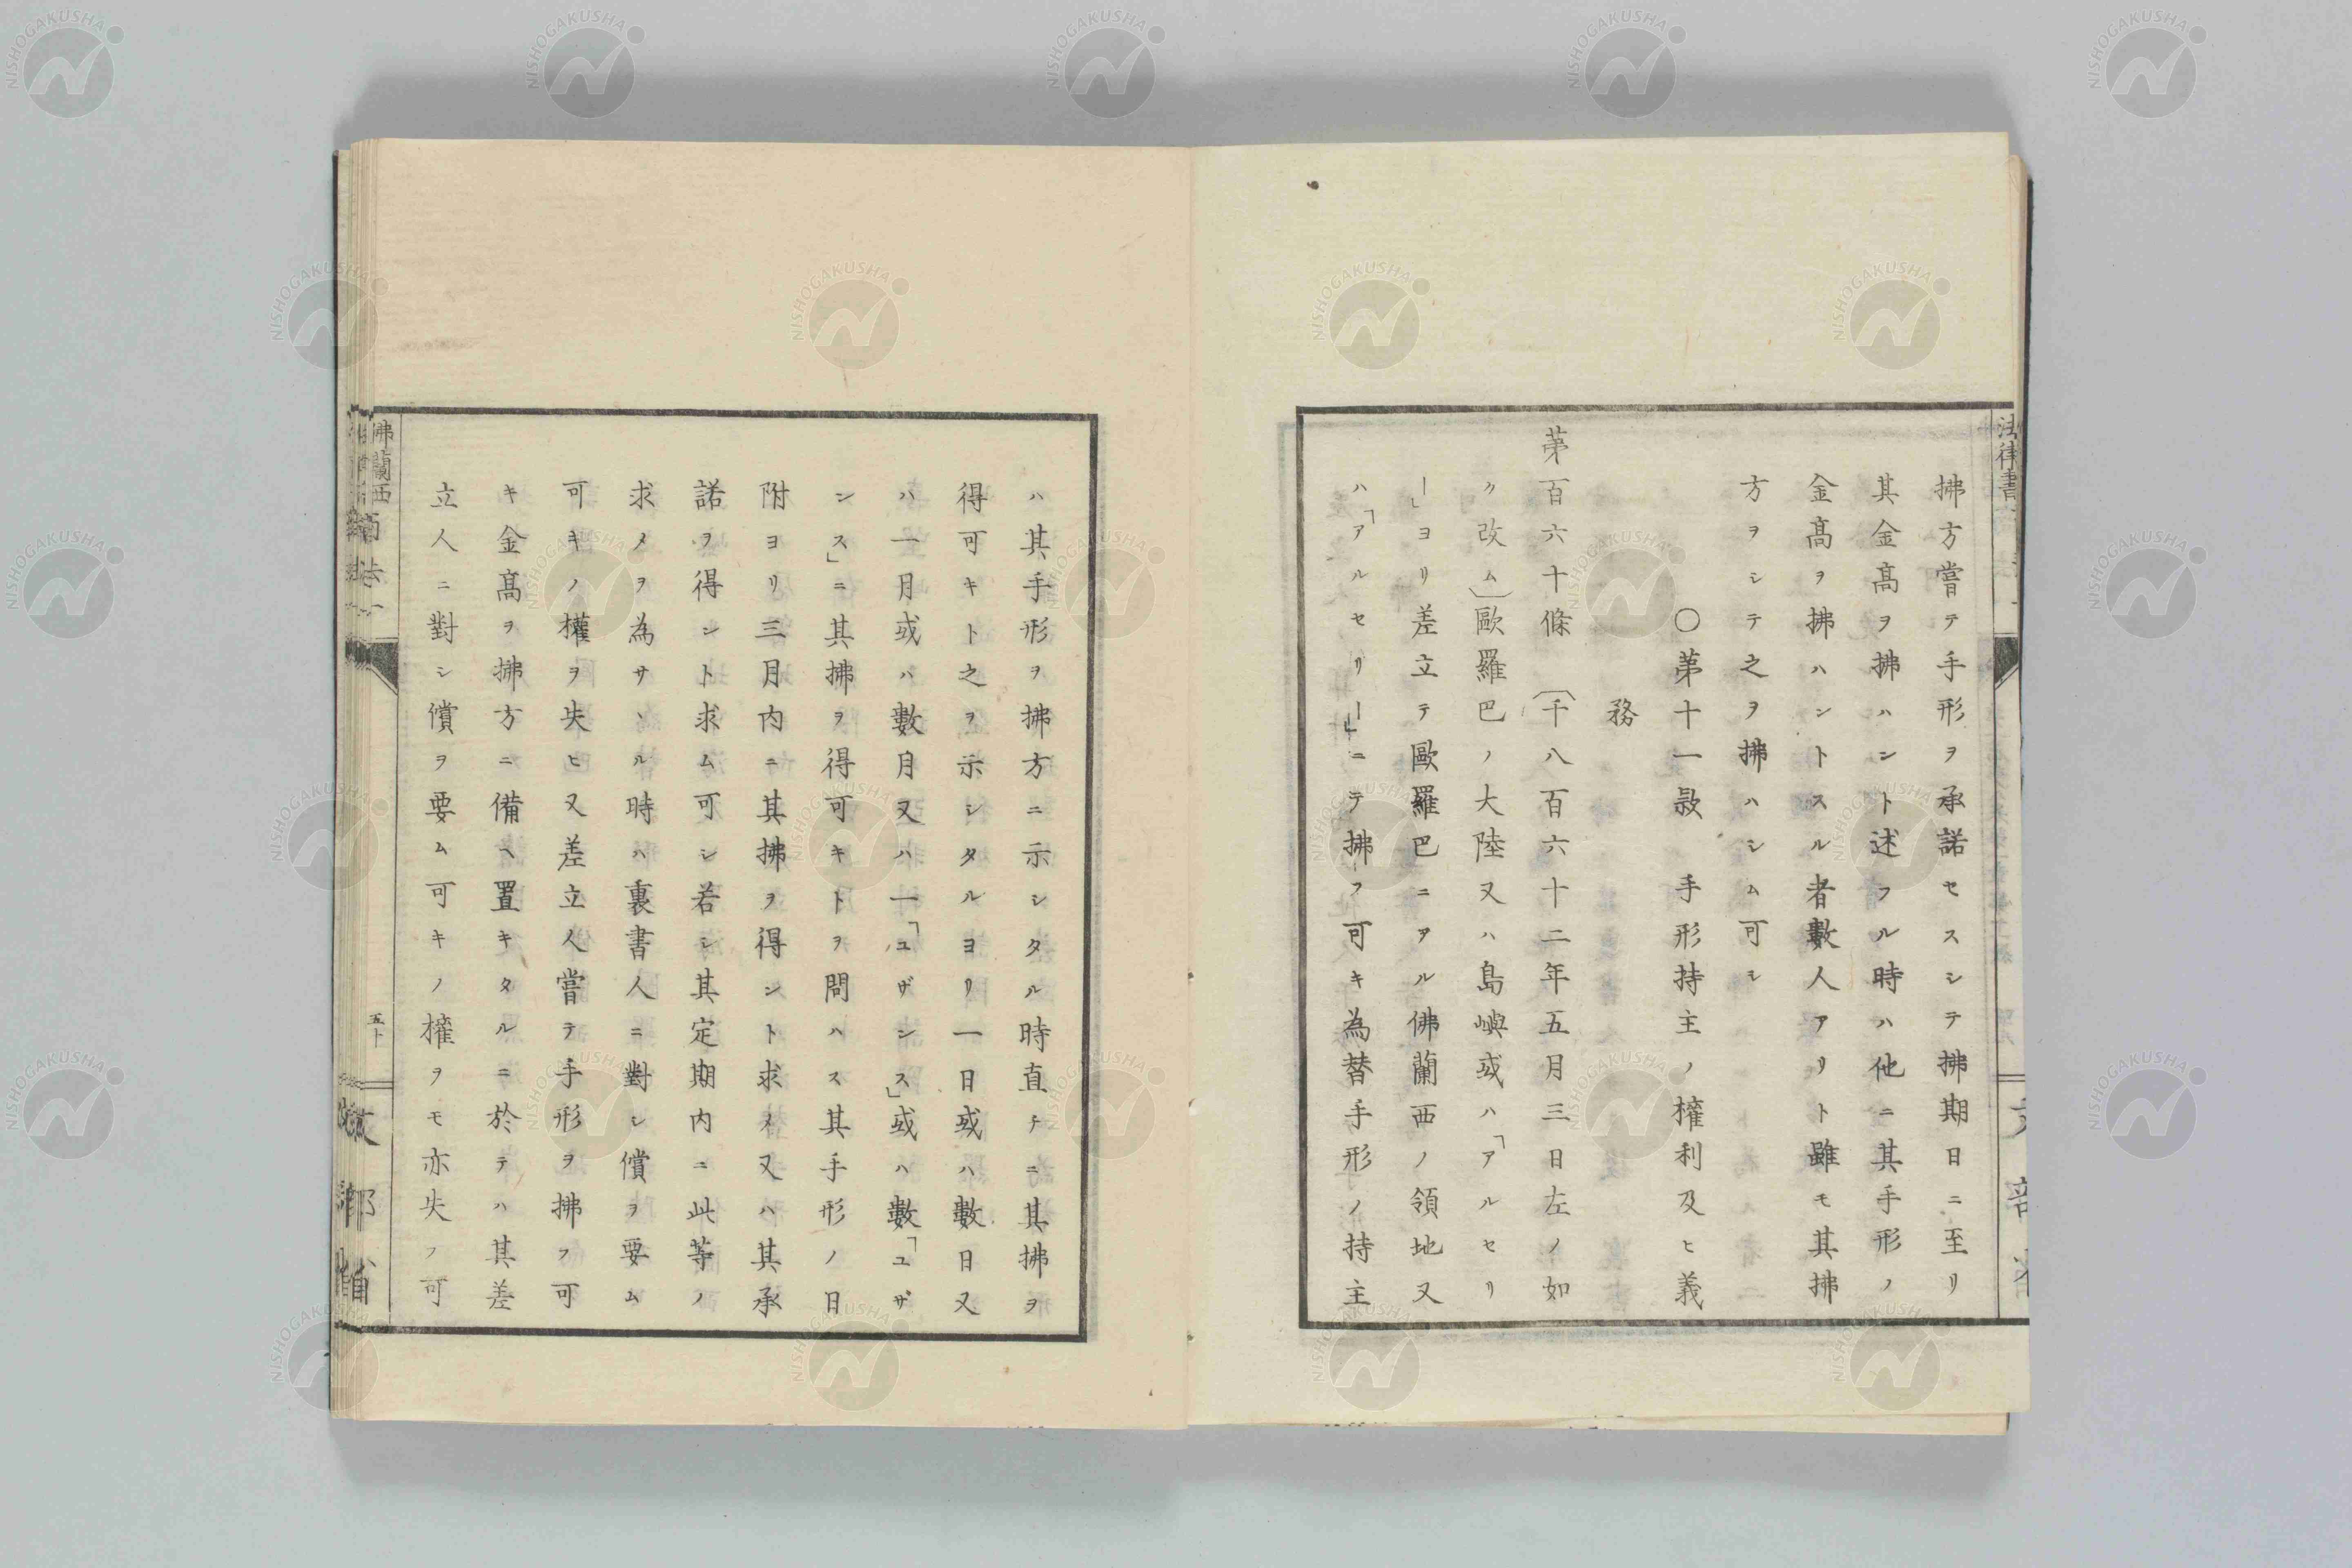 拂方嘗テ手形ヲ承諾セスシテ拂期日ニ至リ
其金高ヲ拂ハント述フル時ハ他ニ其手形ノ
金高ヲ拂ハントスル者數人アリト雖モ其拂
方ヲシテ之ヲ拂ハシム可シ
〇第十一款　手形持主ノ權利及ヒ義
務
第百六十條　〔千八百六十二年五月三日左ノ如
ク改ム〕歐羅巴ノ大陸又ハ島嶼或ハ「アルセリ
ー」ヨリ差立テ歐羅巴ニアル佛蘭西ノ領地又
ハ「アルセリー」ニテ拂フ可キ為替手形ノ持主
ハ其手形ヲ拂方ニ示シタル時直チニ其拂ヲ
得可キト之ヲ示シタルヨリ一日或ハ數日又
ハ一月或ハ數月又ハ一「ユザンス」或ハ數「ユザ
ンス」ニ其拂ヲ得可キトヲ問ハス其手形ノ日
附ヨリ三月内ニ其拂ヲ得ント求メ又ハ其承
諾ヲ得ント求ム可シ若シ其定期内ニ此等ノ
求メヲ為サヽル時ハ裏書人ニ對シ償ヲ要ム
可キノ權ヲ失ヒ又差立人嘗テ手形ヲ拂フ可
キ金高ヲ拂方ニ備ヘ置キタルニ於テハ其差
立人ニ對シ償ヲ要ム可キノ權ヲモ亦失フ可
佛蘭西商法一
五十
NISHOGAKUSHA